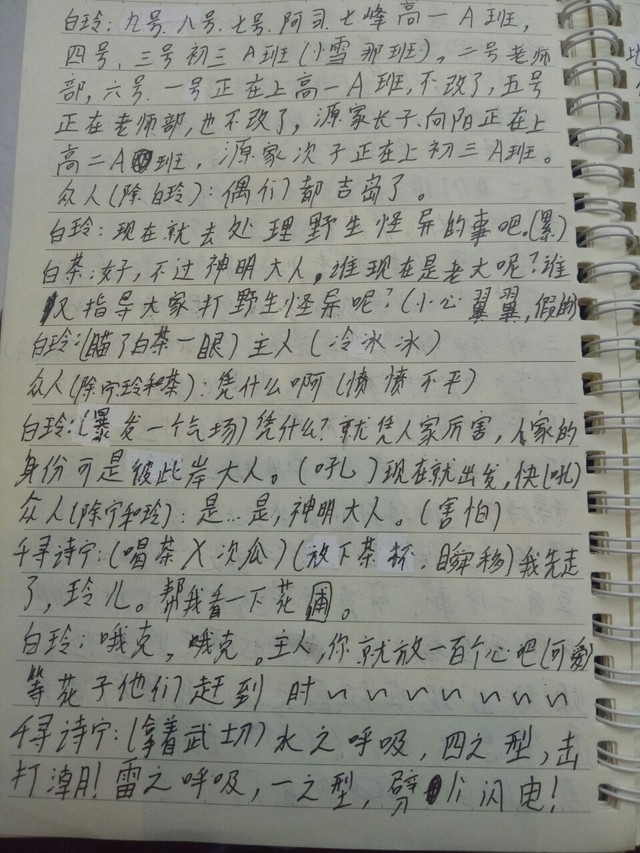 白玲：九号、八号、七号、阿习、七峰高一A班，
四号、三号初三A班（小雪那班），二号老师
部，六号、一号正在上高一A班，不改了，五号
正在老师部，也不改了，源家长子、向阳正在上
高二A班，源家次子正在上初三A班。
众人（除白玲）：偶们都吉岛了。
白玲：现在就去处理野生怪异的事吧。（累）
白茶：好，不过神明大人，谁现在是老大呢？谁
又指导大家打野生怪异呢？（小心翼翼，假的
白玲：（瞄了白茶一眼）主人（冷冰冰）
众人（除宁玲和茶）：凭什么啊（愤愤不平）
白玲：（暴发一个气场）凭什么？就凭人家厉害，人家的
身份可是彼此岸大人。（吼）现在就出发，快（吼）
众人（除宁和玲）：是…是，神明大人。（害怕）
千寻诗宁：（喝茶X次瓜）（放下茶杯，瞬移）我先走
了，玲儿。帮我看一下花圃。
白玲：哦克，哦克。主人，你就放一百个心吧（可爱）
等花子他们赶到时~~~~~~~
千寻诗宁：（拿着武切）水之呼吸，四之型，击
打潮！雷之呼吸，一之型，劈闪电！